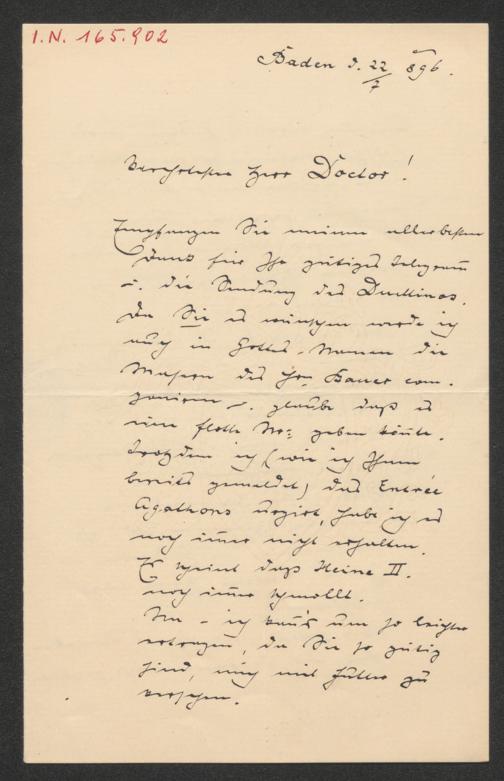 I.N. 165.902
Baden d. 22/7 896.
Verehrtester Herr Doctor!
Empfangen Sie meinen allerbesten
Dank für Ihr gütiges Telegramm
u. die Sendung des Duettinos.
Da Sie es wünschen werde ich
auch in Gottes-Namen die
Masern des Hrn. Bauer com-
ponieren u. glaube daß es
eine flotte No: geben könnte.
Trotzdem ich (wie ich Ihnen
bereits gemeldet) das Entrée
Agathons urgirt, habe ich es
noch immer nicht erhalten.
Es scheint daß Heine II.
noch immer schmollt.
Na - ich kann's um so leichter
ertragen, da Sie so gütig
sind, mich mit Futter zu
versehen.